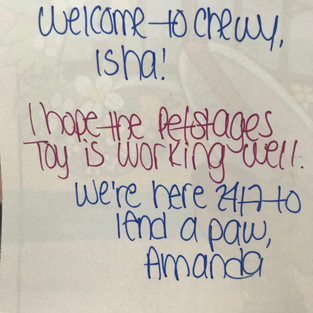 Welcome to Chewy,
Isha!
I hope the Petstages
Toy is working well.
We're here 24/7 to
lend a paw,
Amanda